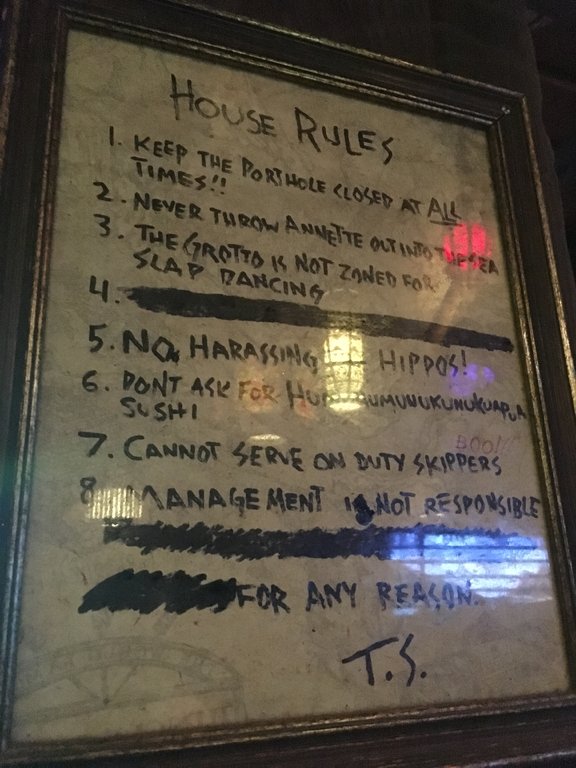 HOUSE RULES
1. KEEP THE PORTHOLE CLOSED AT ALL
TIMES!!
2. NEVER THROW ANNETTE OUT INTO THE SEA
3. THE GROTTO IS NOT ZONED FOR
SLAP DANCING
4.
5. NO HARASSING HIPPOS!
6. DONT ASK FOR
SUSHI
BOO!
7. CANNOT SERVE ON DUTY SKIPPERS
8. MANAGEMENT IS NOT RESPONSIBLE
FOR ANY REASON.
T.S.